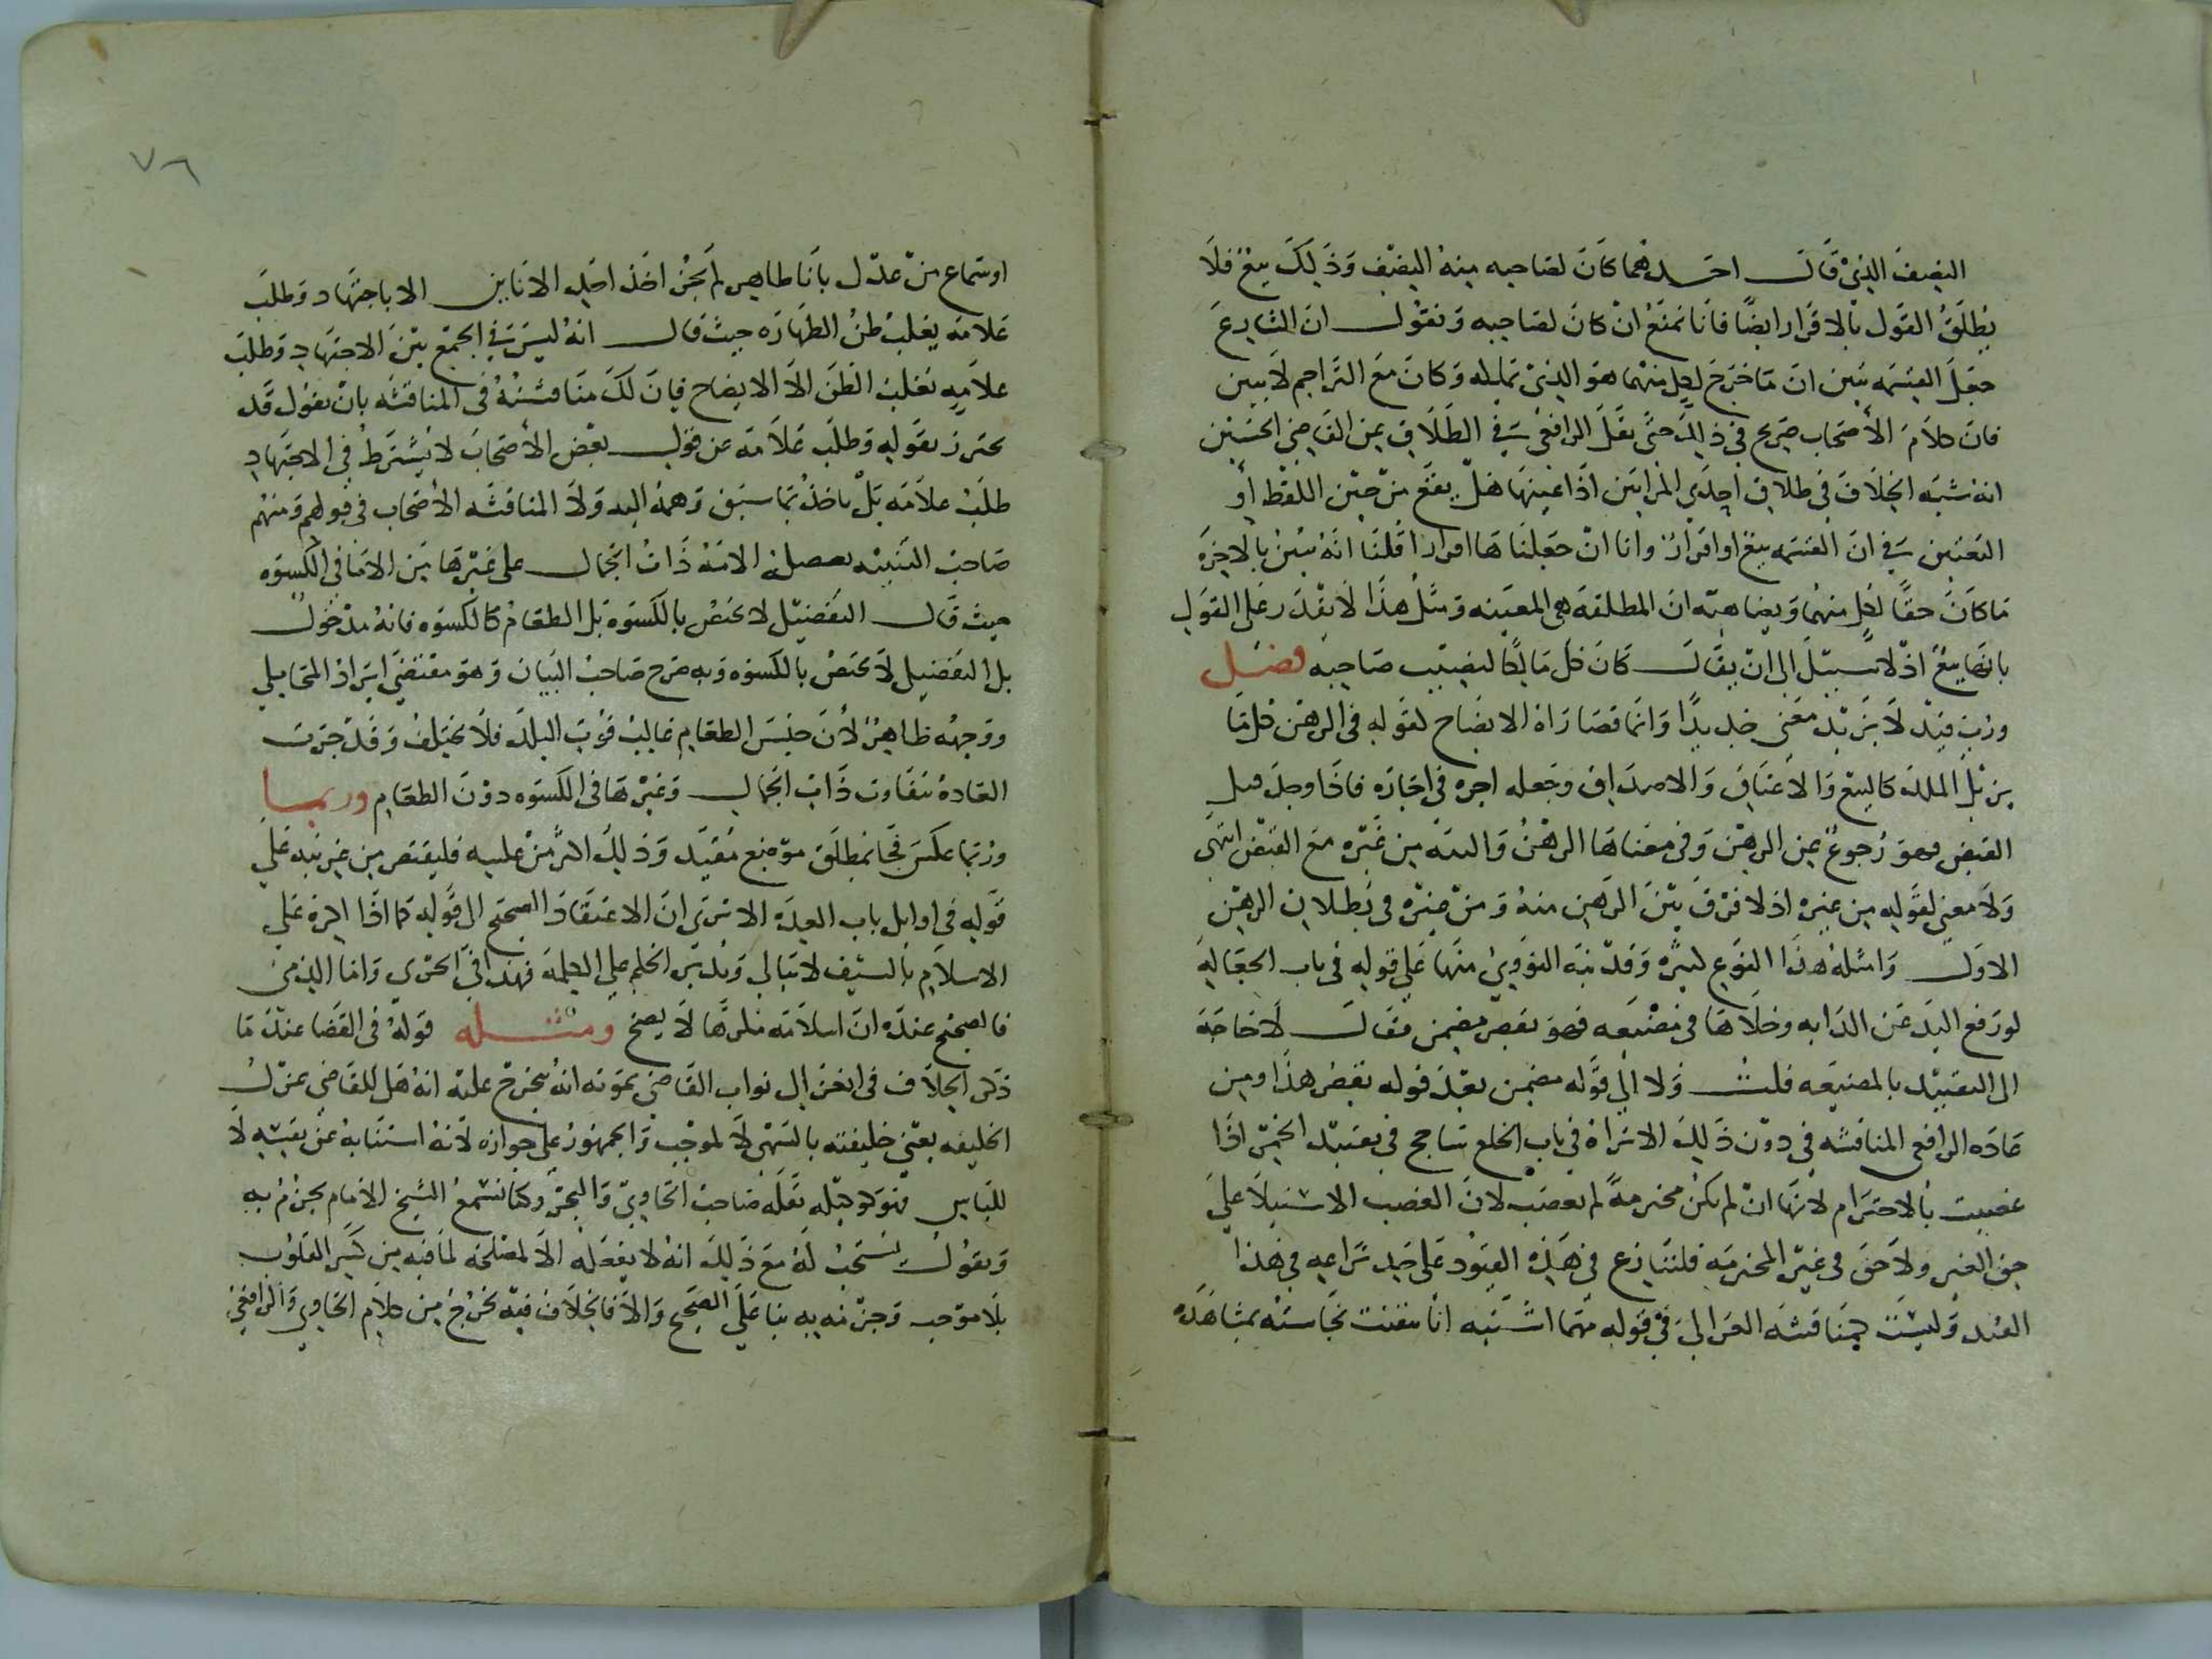 النصف الذي قال احدهما كان لصاحبه منه النصف وذلك بيع فلا
يطلق القول بالاقرار ايضا فانا نمنع ان كان لصاحبه ونقول ان الشارع
جعل القسمة تبين ان ما خرج لكل منهما هو الذي تملكه وكان مع التراحم لا يبين
فان كلام الأصحاب صريح في ذلك حتى نقل الرافعي في الطلاق عن القاضي الحسين
انه شبه الخلاف في طلاق احدى المراتين اذا عينها هل يقع من حين اللفظ أو
التعيين في ان القسمة بيع او اقرار وانا ان جعلناها اقرارا قلنا انه تبين بالاخرة
ما كان حقا لكل منهما ويضاهيه ان المطلقة هي المعينة ومثل هذا لا يقدر على القول
بانها بيع اذ لا سبيل الى ان يقال كان كل مالكا لنصيب صاحبه فصل
ورب قيد لا يزيد معنى جديدا وانما قصاراه الايضاح لقوله في الرهن كل ما
يزيل الملك كالبيع والاعتاق والاصداق وجعله اجرة في اجارة فاذا وجد قبل
القبض فهو رجوع عن الرهن وفي معناها الرهن والهبة من غيره مع القبض انتهى
ولا معنى لقوله من غيره اذ لا فرق بين الرهن منه ومن غيره في بطلان الرهن
الاول وامثلة هذا النوع كثيرة وقد نبه النووي منها على قوله في باب الجعالة
لو رفع اليد عن الدابة وخلاها في مضيعة فهو تقصير مضمن فقال لا حاجة
الى التقييد بالمضيعة قلت ولا الى قوله مضمن بعد قوله تقصير هذا ومن
عادة الرافعي المناقشة في دون ذلك الا تراه في باب الخلع تناجح في تقييد الخمر اذا
غصبت بالاحترام لانها ان لم تكن محترمة لم تغصب لان الغصب الاستيلا على
حق الغير ولا حق في غير المحترمة فلتنازع في هذه القيود على حد نزاعه في هذا
القيد وليست كمناقشة الغزالي في قوله مهما اشتبه انا تيقنت نجاسته بمشاهدة
٧٦
او سماع من عدل بانا طاهر لم يجز اخذ احد الانائين الا باجتهاد وطلب
علامة يغلب ظن الطهارة حيث قال انه ليس في الجمع بين الاجتهاد وطلب
علامة تغلب الظن الا الايضاح فان لك مناقشته في المناقشة بان تقول قد
يحترز بقوله وطلب علامة عن قول بعض الأصحاب لا يشترط في الاجتهاد
طلب علامة بل ياخذ بما سبق وهمه اليه ولا المناقشة الأصحاب في قولهم ومنهم
صاحب التنبيه تفضل الامة ذات الجمال على غيرها من الاما في الكسوة
حيث قال التفضيل لا يختص بالكسوة بل الطعام كالكسوة فانه مدخول
بل التفضيل لا يختص بالكسوة وبه صرح صاحب البيان وهو مقتضى ايراد المحاملي
ووجهه ظاهر لأن جنس الطعام غالب قوت البلد فلا يختلف وقد جرت
العادة بتفاوت ذات الجمال وغيرها في الكسوة دون الطعام وربما
وربما عكس فجا بمطلق موضع مقيد وذلك اكثر من عليه فليقتصر من غير نبه على
قوله في اوايل باب العدة الا ترى ان الاعتقاد الصحيح الى قوله كما اذا اكره على
الاسلام بالسيف لا تبالي وندير الحكم على الكلمة فهذا في الحربي واما الذمي
فالصحيح عنده ان اسلامه مكرها لا يصح ومثله قوله في القضا عند ما
ذكر الخلاف في انعزال نواب القاضي بموته انه يخرج عليه انه هل للقاضي عزل
الخليفة يعني خليفته بالتشهي لا لموجب والجمهور على جوازه لأنه استنابه عن نفسه لا
للناس فهو كوكيله نقله صاحب الحاوي والبحر وكنا نسمع الشيخ الامام يجزم به
ويقول يستحب له مع ذلك انه لا يفعله الا لمصلحة لما فيه من كسر القلوب
بلا موجب وجزمه به بنا على الصحيح والا فالخلاف فيه يخرج من كلام الحاوي والرافعي